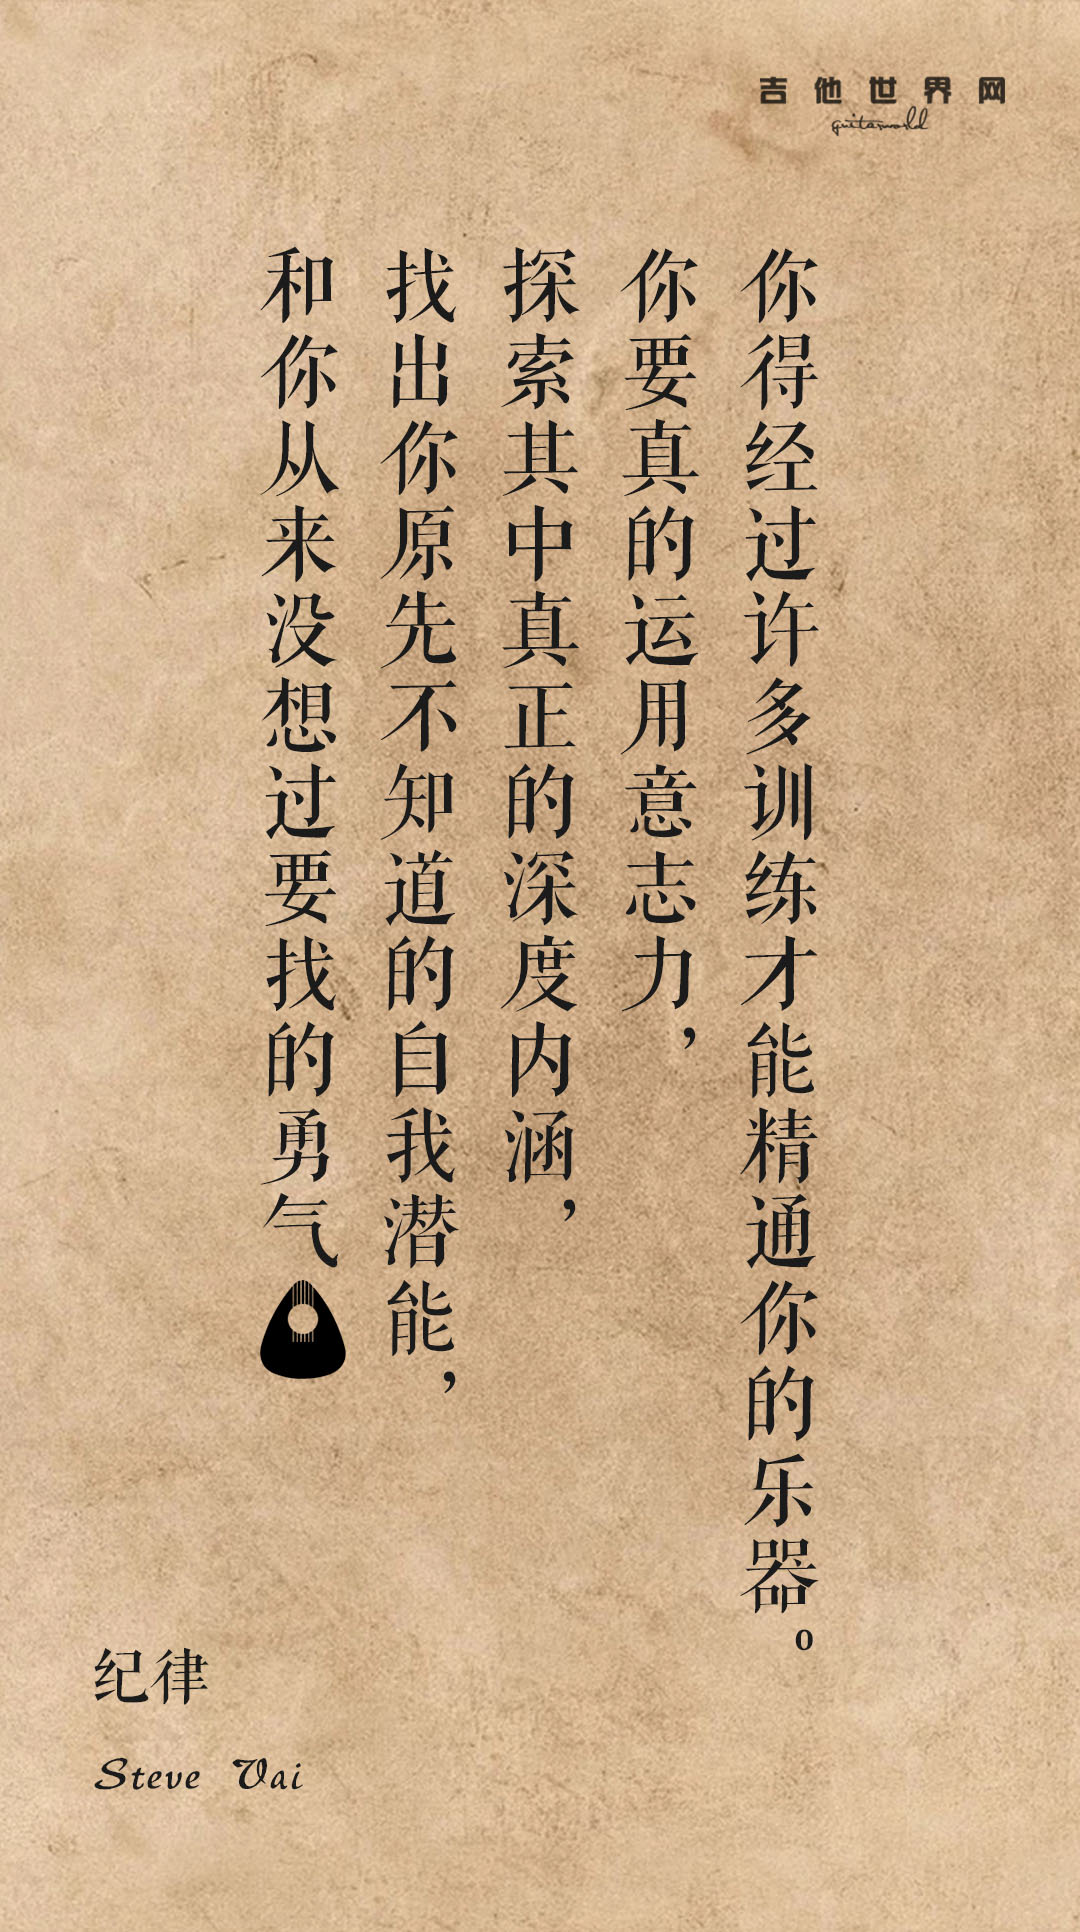 吉他世界网
guitarworld
你得经过许多训练才能精通你的乐器。
你要真的运用意志力，
探索其中真正的深度内涵，
找出你原先不知道的自我潜能，
和你从来没想过要找的勇气
纪律
Steve Vai